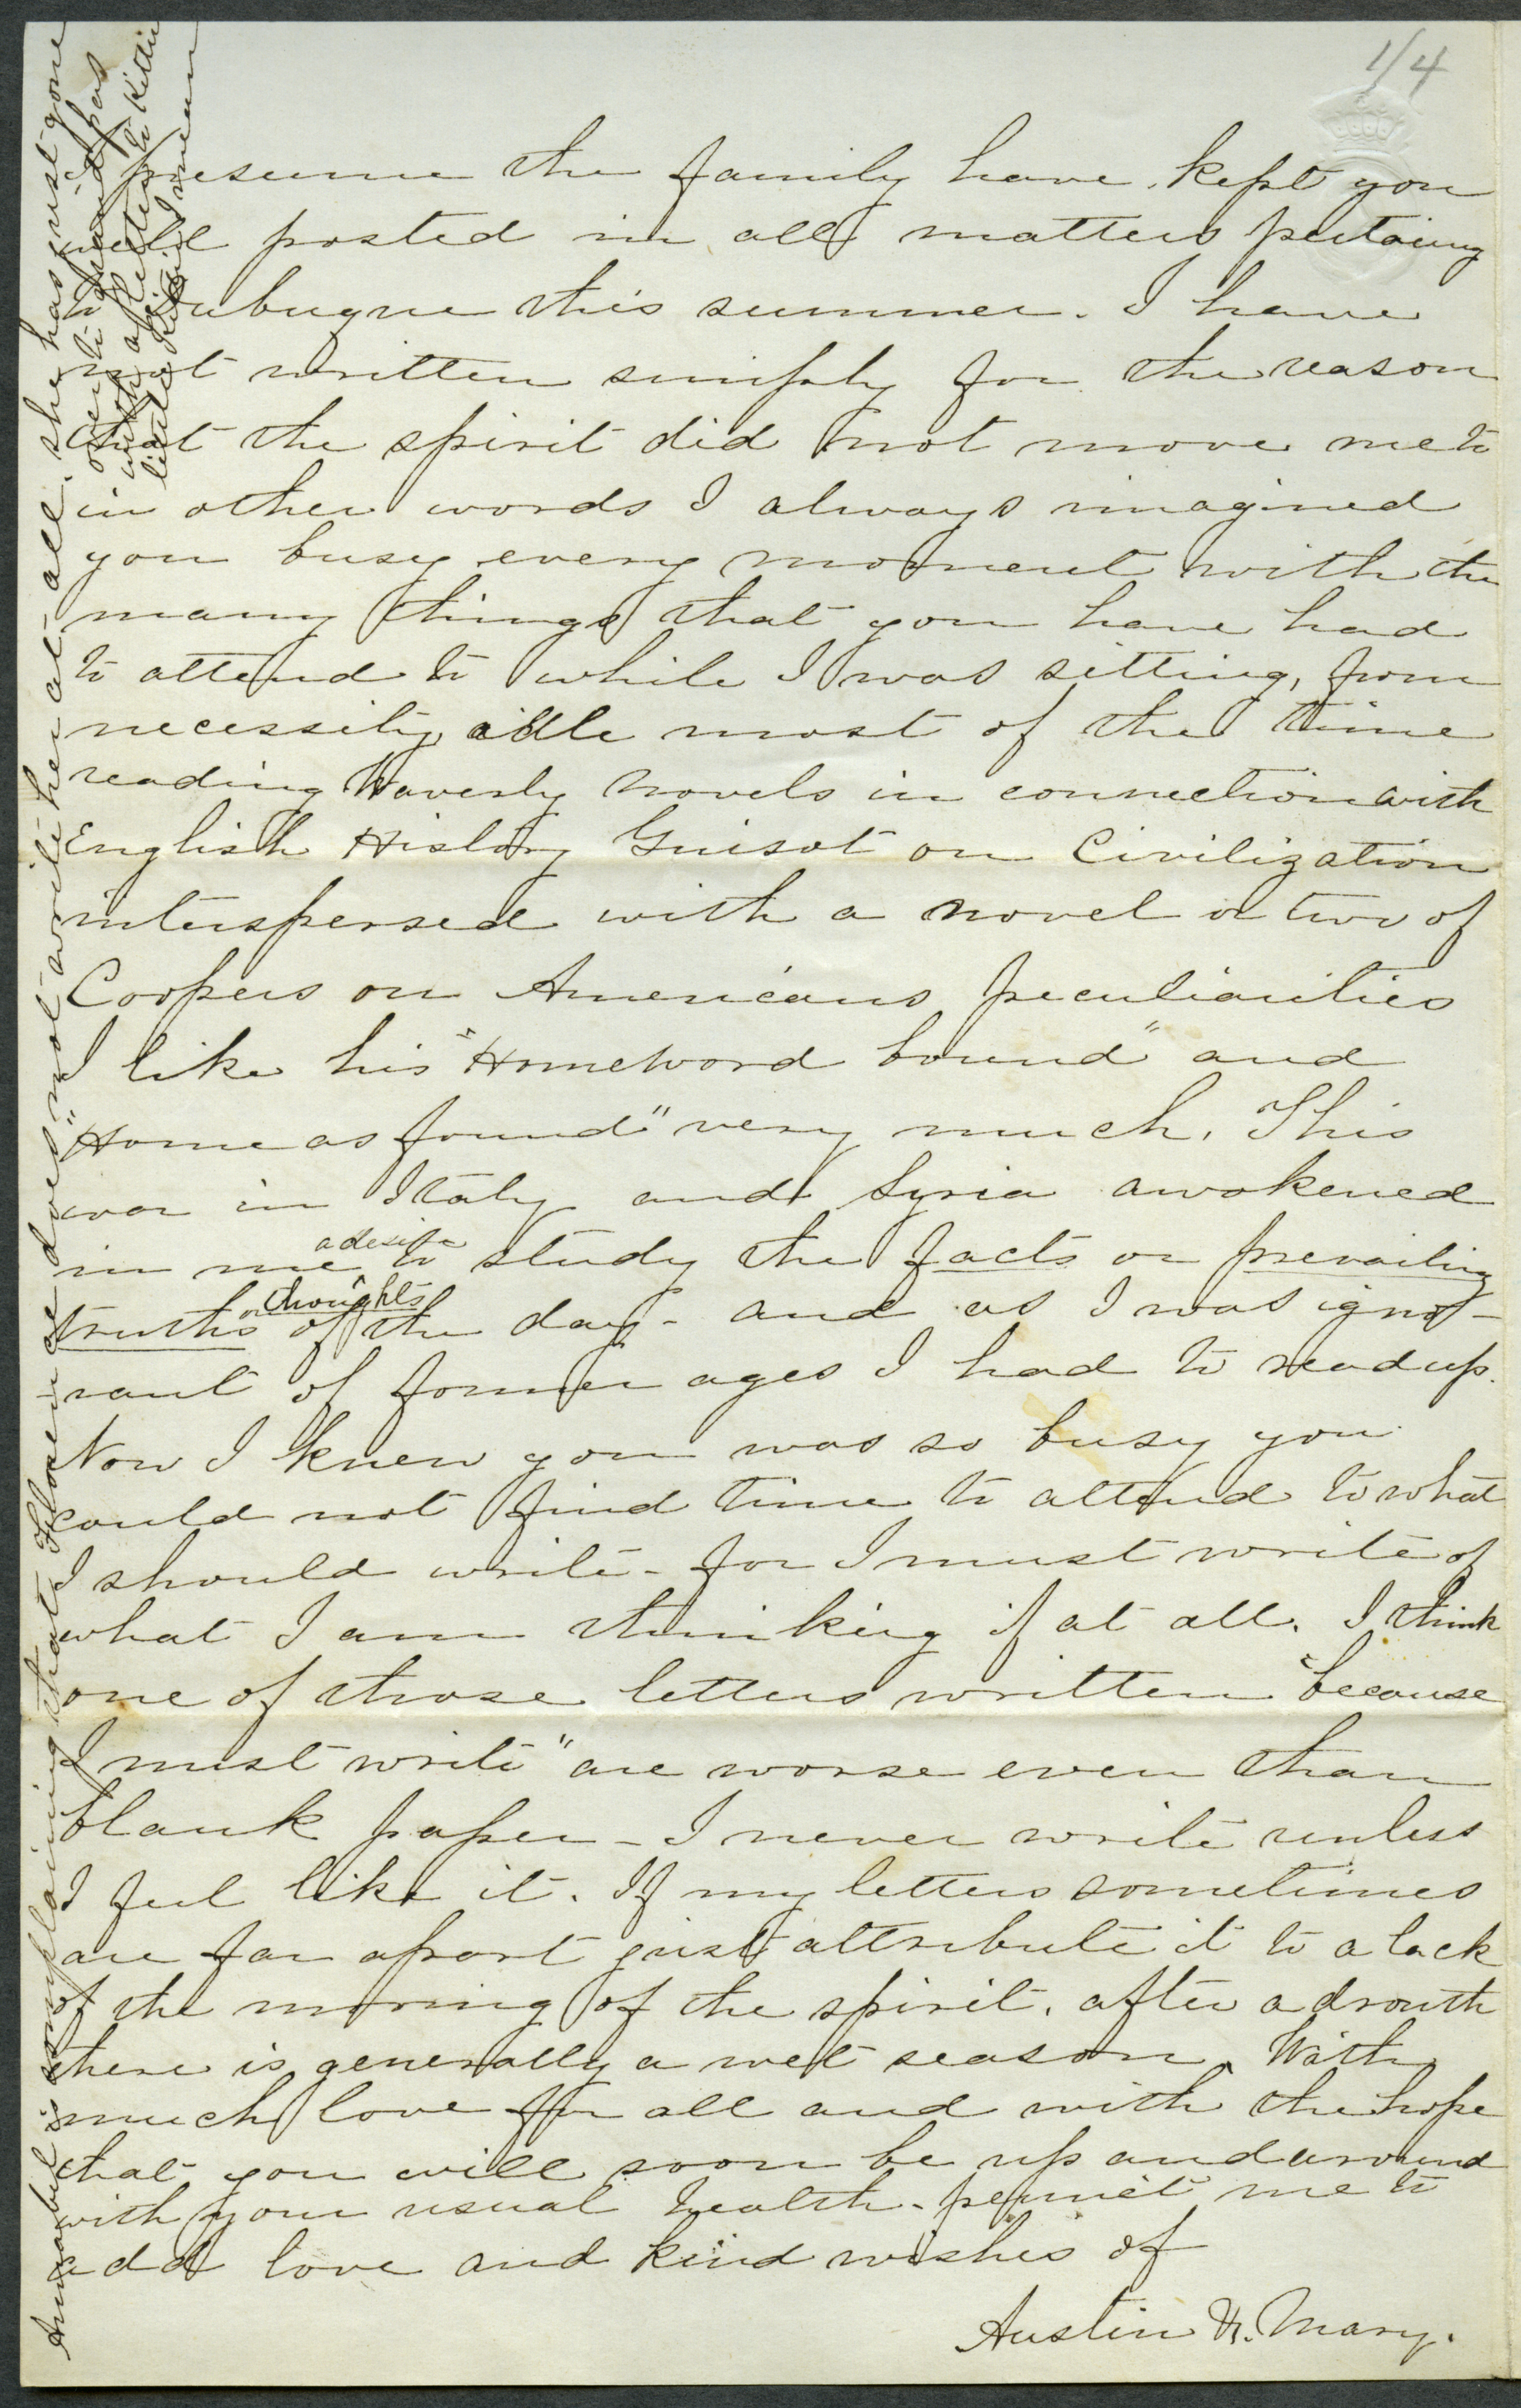 1/4
I presume the family have kept you
well posted in all matters pertaing
to Dubuque this summer. I have
not written simply for the reason
that the spirit did not move me to
in other words I always imagined
you busy every moment with the
many things that you have had
to attend to while I was sitting, from
necessity, idle most of the time
reading Waverly Novels in connection with
English History Guisot on Civilization
interspersed with a novel or two of
Coopers on Americans peculiarities
I like his "Homeward bound" and
"Home as found" very much. This
war in Italy and Syria awakened
in me a desire to study the facts or prevailing
truths or thoughts of the day - and as I was igno-
rant of former ages I had to read up.
Now I knew you was so busy you
could not find time to attend to what
I should write - for I must write of
what I am thinking if at all. I think
one of those letters written "because
I must write" are worse even than
blank paper - I never write unless
I feel like it. If my letters sometimes
are far apart just attribute it to a lack
of the moving of the spirit. after a drouth
there is generally a wet season. With
much love for all and with the hope
that you will soon be up and around
with your usual health - permit me to
add love and kind wishes of
Austin & Mary.
Annabel is complaining that Florence does not write her at all. she has just gone
over to grand pas
with a letter to Kittie
little Kittie I mean